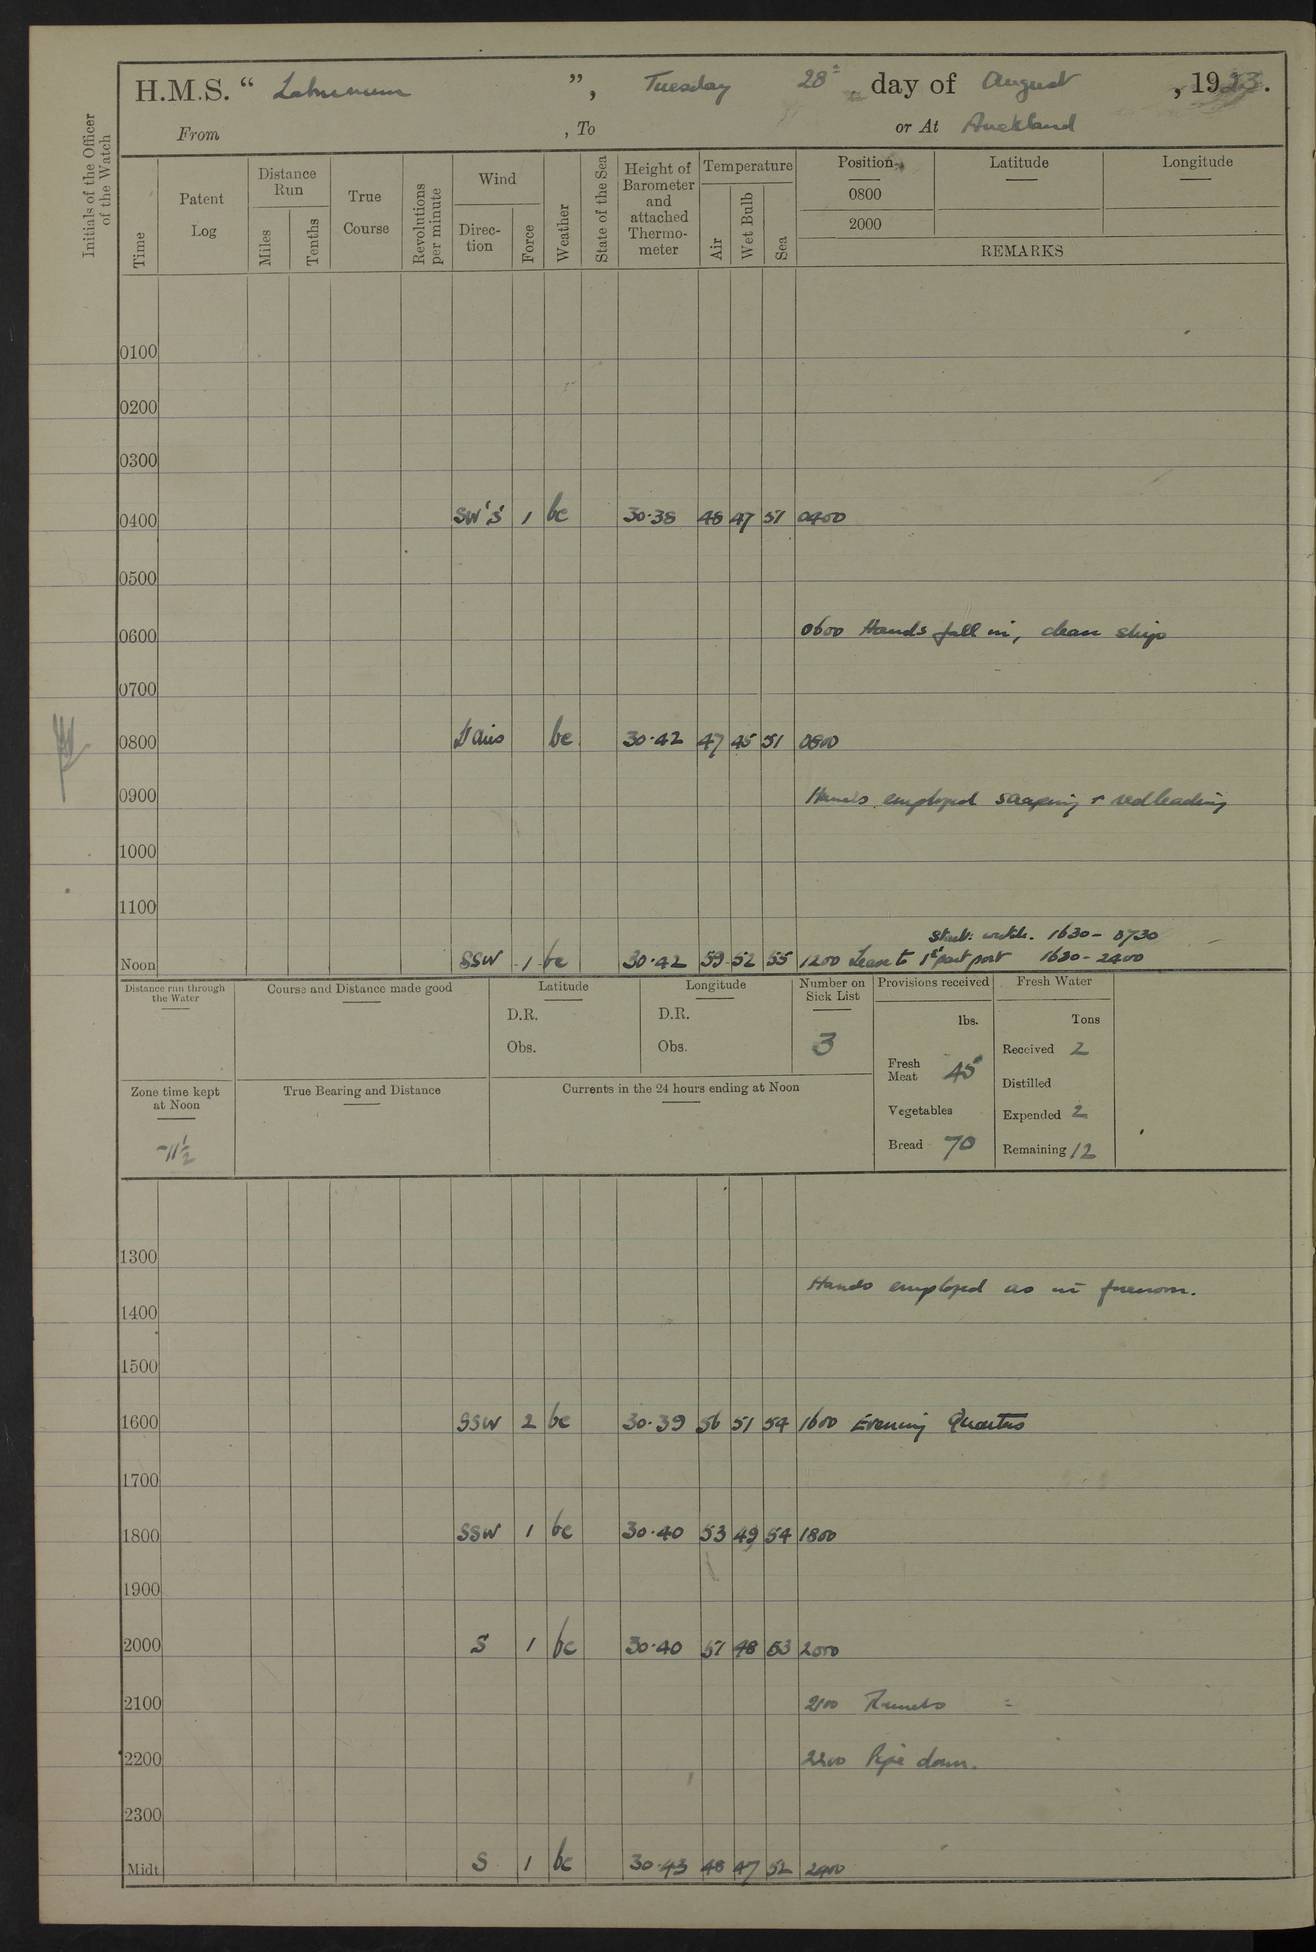 H.M.S. “ Laburnum ”, Tuesday 28th day of August, 1923.
From , To or At Auckland
Initials of the Officer of the Watch
Time
Patent Log
Distance Run
Miles
Tenths
True Course
Revolutions per minute
Wind
Direc-tion
Force
Weather
State of the Sea
Height of Barometer and attached Thermo-meter
Temperature
Air
Wet Bulb
Sea
Position
Latitude
Longitude
0800
2000
REMARKS
0100
0200
0300
0400 SW'S 1 bc 30.38 48 47 51 0400
0500
0600 0600 Hands fall in, clean ship
0700
0800 V airs bc 30.42 47 45 51 0800
0900 Hands employed scraping + redleading
1000
1100
Starb: watch. 1630 - 0730
Noon SSW 1 bc 30.42 59 52 55 1200 Leave to 1st part port 1630 - 2400
Distance run through the Water
Course and Distance made good
Latitude
D.R.
Obs.
Longitude
D.R.
Obs.
Number on Sick List
3
Provisions received
lbs.
Fresh Meat 45
Vegetables
Bread 70
Fresh Water
Tons
Received 2
Distilled
Expended 2
Remaining 12
Zone time kept at Noon
-11½
True Bearing and Distance
Currents in the 24 hours ending at Noon
1300
Hands employed as in forenoon.
1400
1500
1600 SSW 2 bc 30.39 56 51 54 1600 Evening Quarters
1700
1800 SSW 1 bc 30.40 53 49 54 1800
1900
2000 S 1 bc 30.40 51 48 53 2000
2100 2100 Rounds
2200 2200 Pipe down.
2300
Midt S 1 bc 30.43 48 47 52 2400